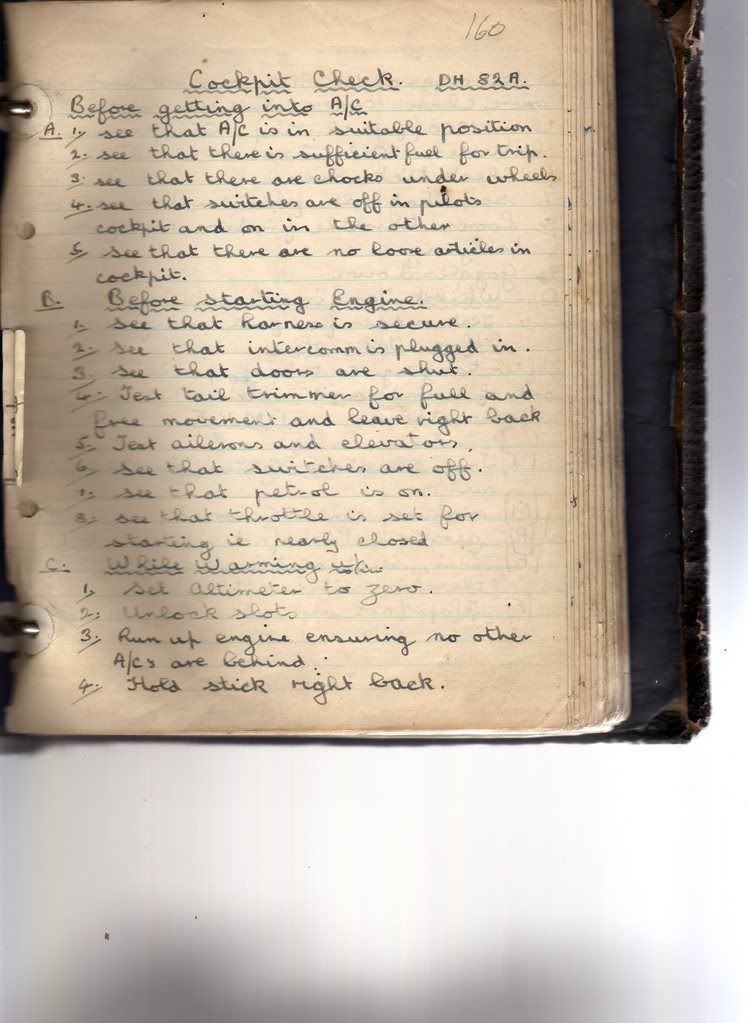 160
Cockpit Check. DH 82A.
Before getting into A/C
A. 1. see that A/C is in suitable position
2. see that there is sufficient fuel for trip.
3. see that there are chocks under wheels
4. see that switches are off in pilots
cockpit and on in the other
5. see that there are no loose articles in
cockpit.
B. Before starting Engine.
1. see that harness is secure.
2. see that intercomm is plugged in.
3. see that doors are shut.
4. Test tail trimmer for full and
free movement and leave right back
5. Test ailerons and elevators.
6. see that switches are off.
7. see that petrol is on.
8. see that throttle is set for
starting ie nearly closed
C. While Warming up.
1. Set Altimeter to zero.
2. Unlock slots
3. Run up engine ensuring no other
A/C's are behind.
4. Hold stick right back.